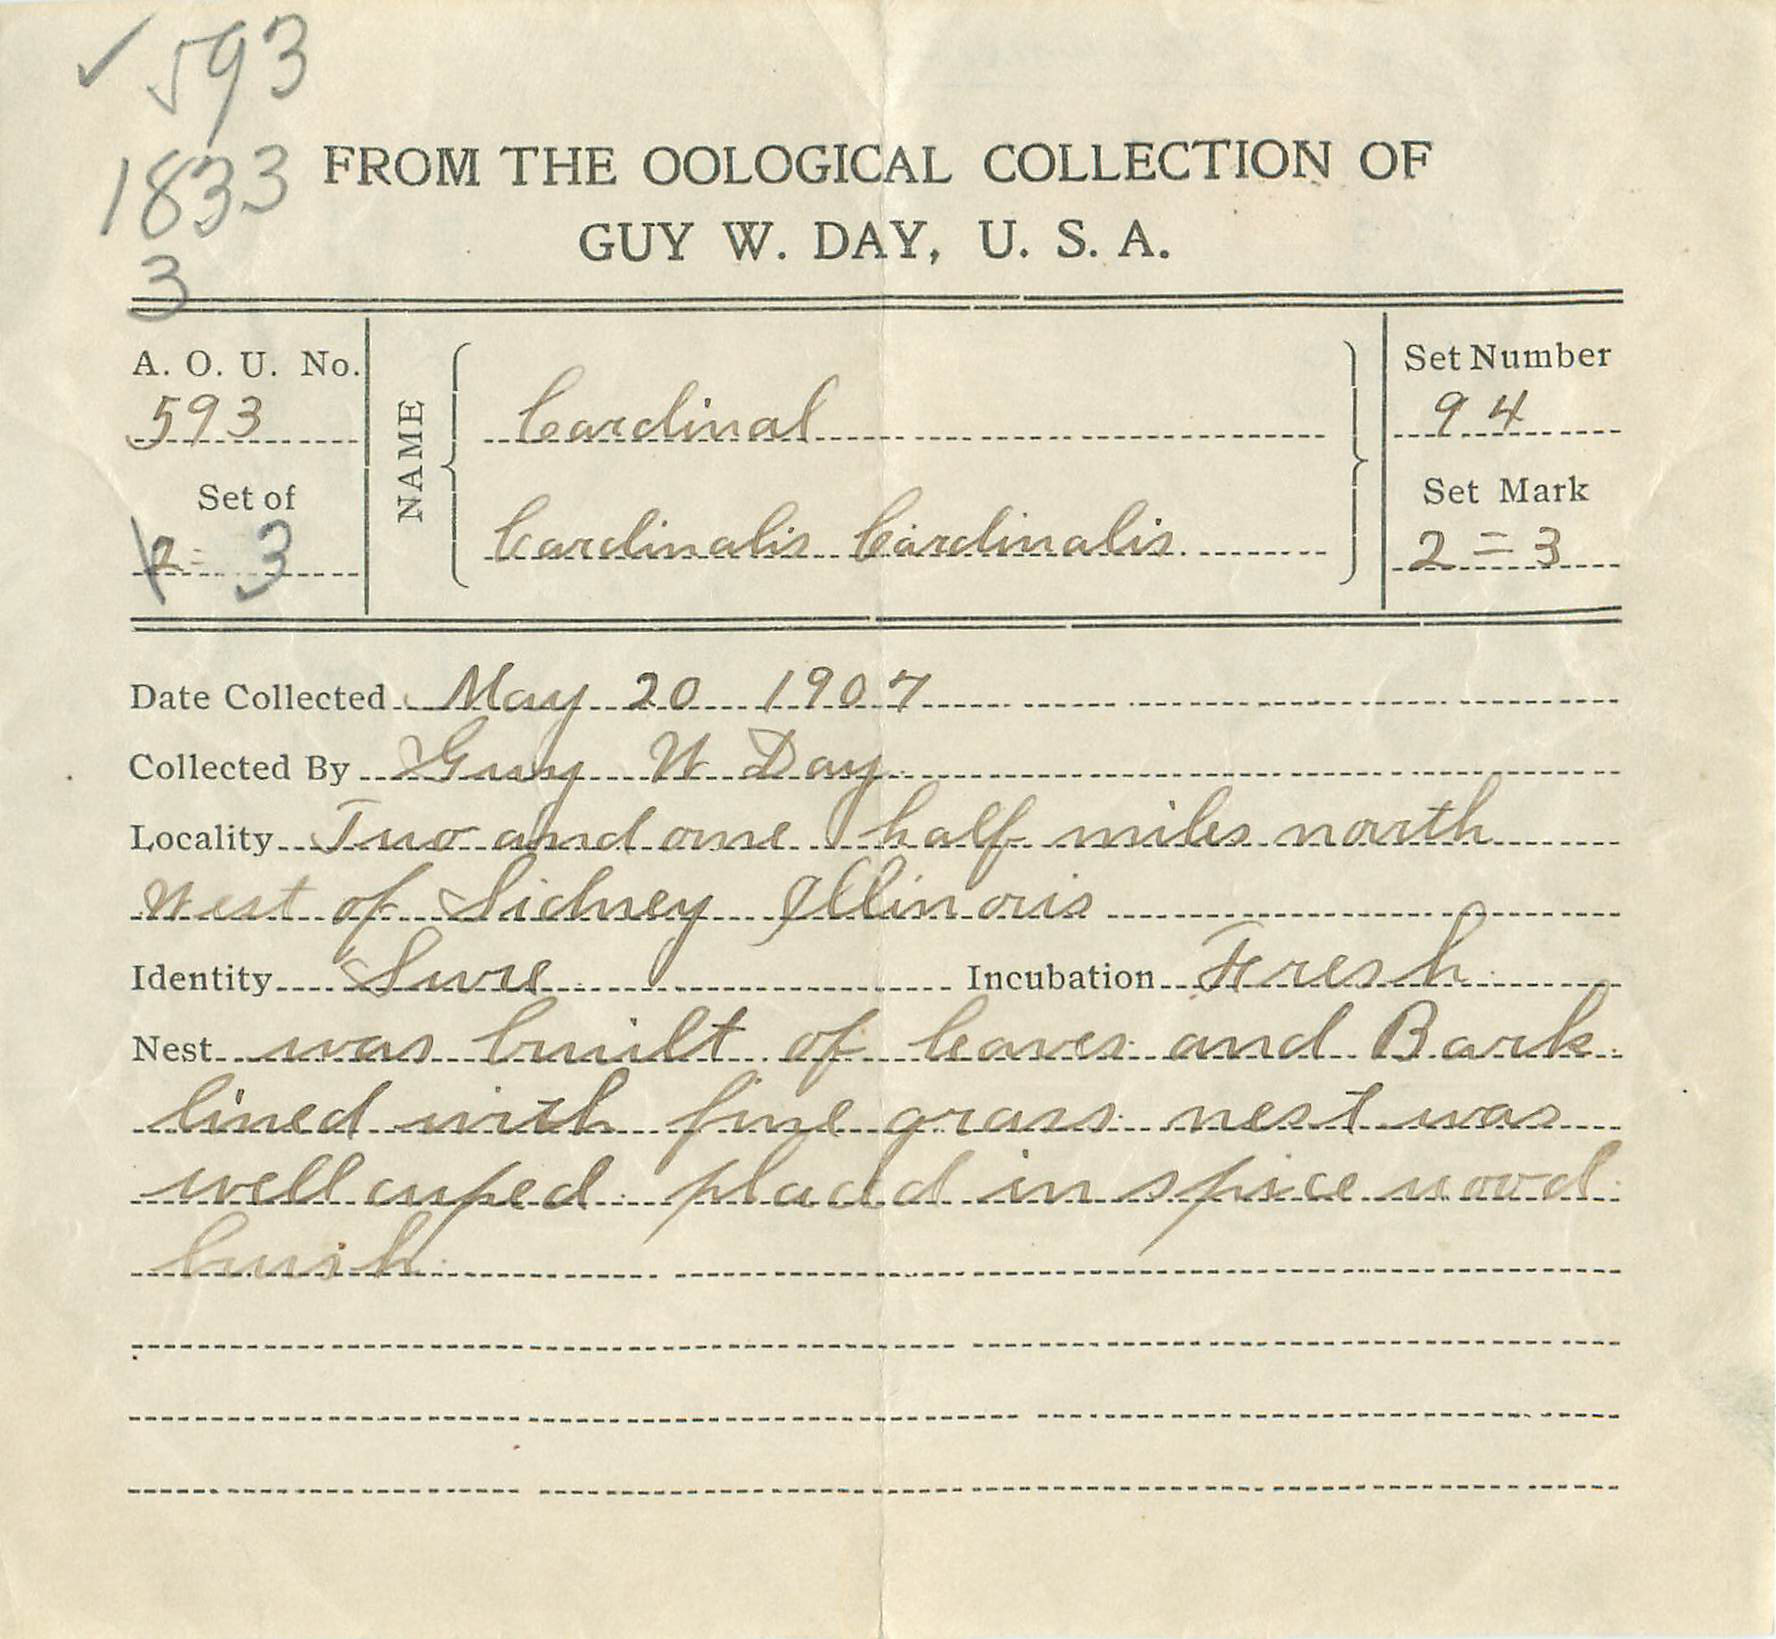 ✓ 593
1833
3
FROM THE OOLOGICAL COLLECTION OF
GUY W. DAY, U. S. A.
A. O. U. No.
593
Set of
2= 3
NAME
Cardinal
Cardinalis Cardinalis
Set Number
94
Set Mark
2=3
Date Collected May 20 1907
Collected By Guy W Day
Locality Two and one half miles north
West of Sidney Illinois
Identity Sure Incubation Fresh
Nest was built of leaves and Bark
lined with fine grass nest was
well cuped placed in spice wood
bush